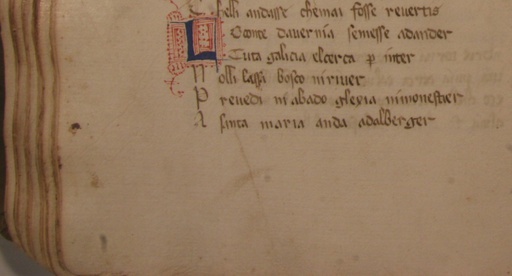 C helli andasse chemai fosse revertis
L Conte davernia semesse adander
Tuta galicia elcerca p inter
N olli lassa bosco ni river
P revedi ni abado glexia ni monestier
A santa maria anda adalberger